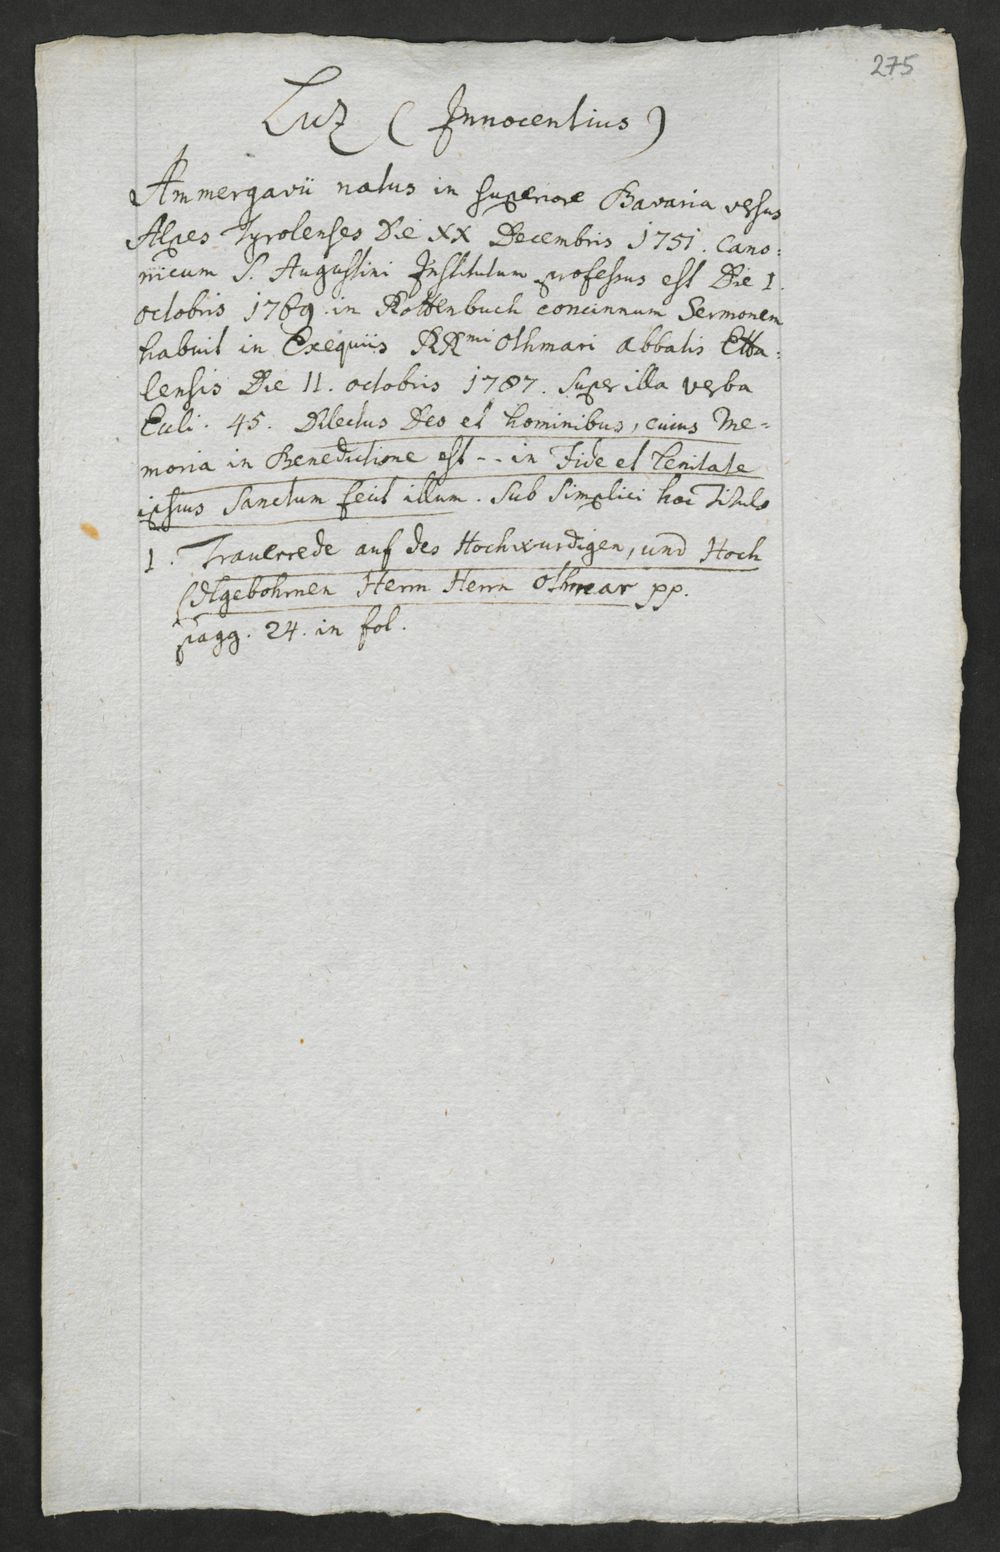 275
Luz (Innocentius)
Ammergavii natus in superiore Bavaria versus
Alpes Tyrolenses Die XX Decembris 1751. Cano:
nicum S. Augustini Institutum professus est Die 1.
octobris 1769. in Rottenbuch concinnum Sermonem
habuit in Exequiis RRmi Othmari Abbatis Etta:
lensis Die 11. octobris 1787. Super illa verba
Eccli. 45. Dilectus Deo et hominibus, cuius Me=
moria in Benedictione est -- in Fide et Lenitate
ipsius Sanctum fecit illum. Sub Simplici hoc Titulo
1. Trauerrede auf des Hochwurdigen, und Hoch
Edlgebohrnen Herrn Herrn Othmar pp.
pagg. 24. in fol.